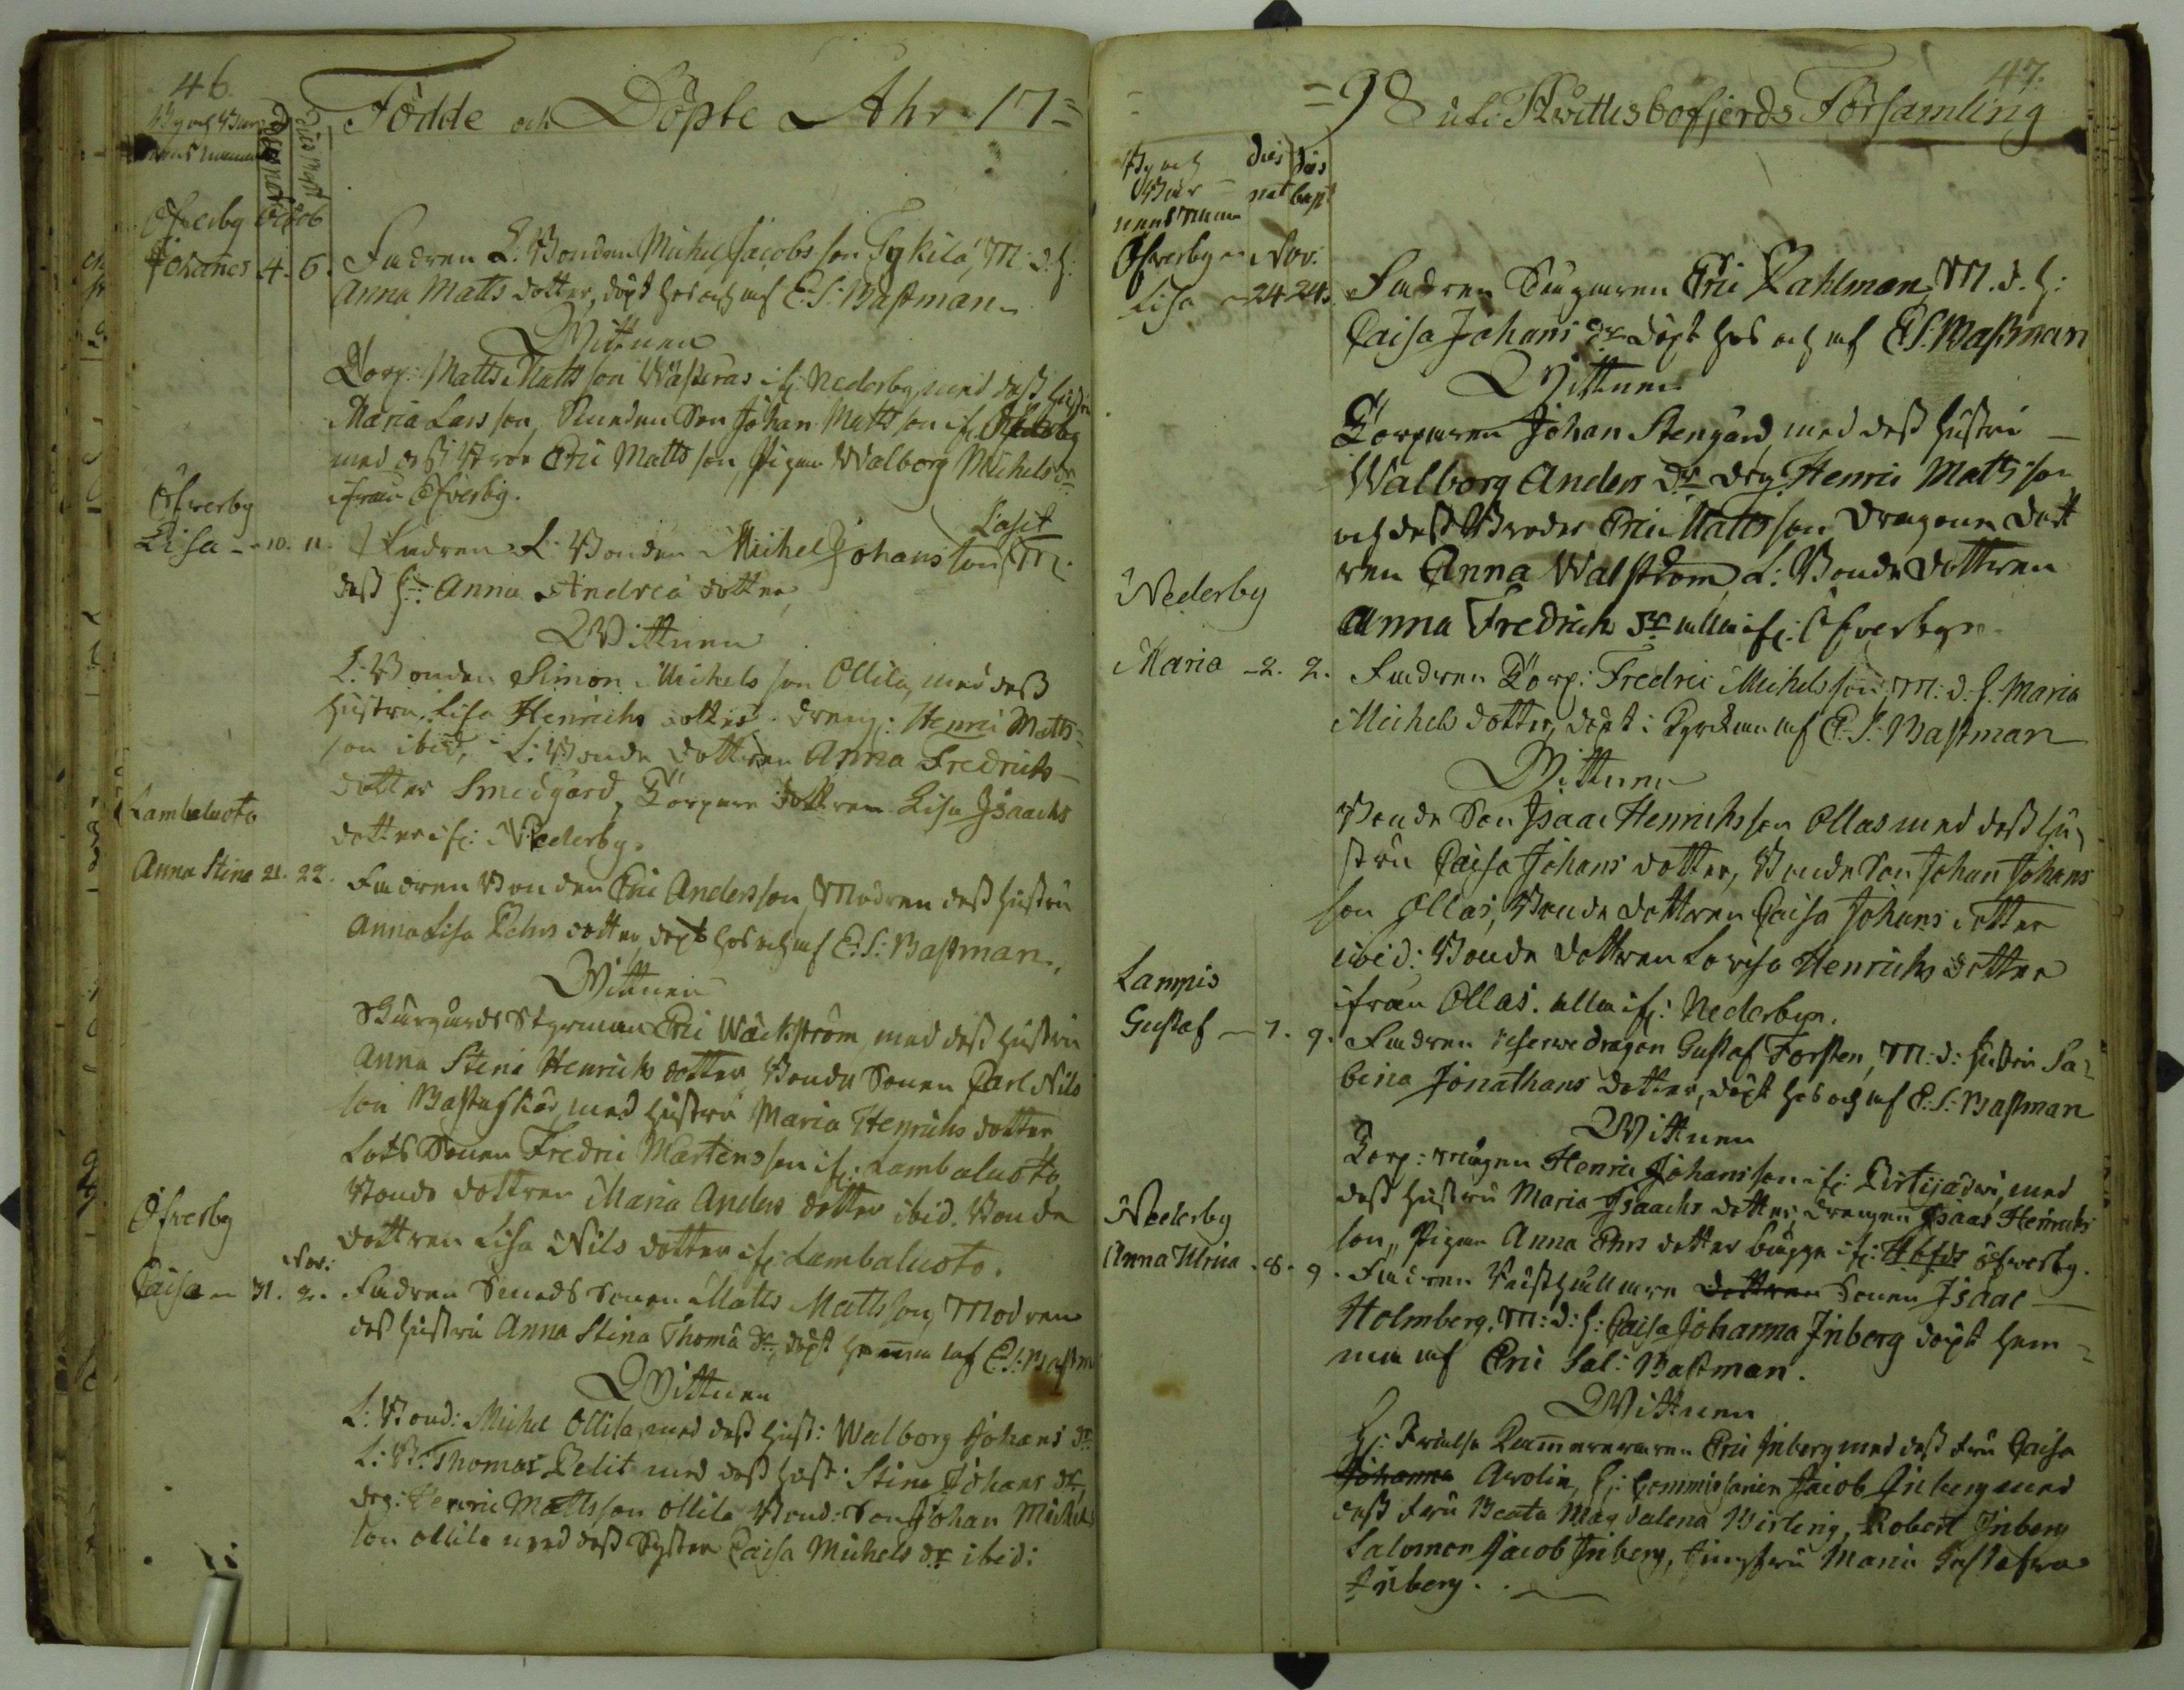 46.
Födde och Döpte Åhr 17=
By och Barnens namn
Dies nat
Dies bapt
Öfverby Octob
Johanes 4. 6. Fadren L: Bonden Michel Jacobs son Tykilä, M: d: h:
Anna Matts dotter, döpt hos och af E: S: Bastman
Wittnen
Torp: Matts Matts son Wästerås if: Nederby, med dess hustru
Maria Lars son, Bonden Son Johan Matts son if:
med dess Bror Eric Matts son, Pigan Walborg Michels dr
ifrån Öfverby.
Öfverby
Lasit
Lisa - 10. 11. Fadren L: Bonden Michel Johans son M:
dess h: Anna Andreä dotter,
Wittnen
L: Bonden Simon Michels son Ollila, med dess
hustru Lisa Henrichs dotter. Dreng: Henric Matts=
son ibid, L: Bonde dottren Anna Fredrichs
dotter Smedgård, Torpare dottren Lisa Isaachs
dotter if: Nederby.
Lambaluoto
Anna Stina 21. 22. Fadren Bonden Eric Anders son, Modren dess hustru
Anna Lisa Pehrs dotter, döpt hos och af E: S: Bastman.
Wittnen
Skärgårds Styrman Eric Wäckström, med dess hustru
Anna Stina Henrichs dotter, Bonde Sonen Carl Nils
son Bastuskär, med hustru Maria Henrichs dotter,
Lots Sonen Fredric Mårtens son if: Lambaluoto,
Bonde dottren Maria Anders dotter ibid. Bonde
dottren Lisa Nils dotter if: Lambaluoto.
Öfverby
Nov:
Caisa - 31. 2. Fadren Smeds Sonen Matts Matts son, Modren
dess hustru Anna Stina Thomä dr, döpt hemma af E: S: Bastm
Wittnen
L: Bond: Michel Ollila, med dess hust: Walborg Johans dr
L: B: Thomas Pelit med dess hust: Stina Johans dr,
drg: Henric Matts son Ollila Bond: Son Johan Michels
son Ollila med dess Syster Caisa Michels dr ibid:
47.
=98 uti Kwittisbofjerds Församling
By och Barnens namn
dies nat
dies bapt
Öfverby - Nov:
Lisa - 24 24. Fadren Sergearen Eric Dahlman, M. d. h:
Caisa Johans dr döpt hos och af E S. Bastman
Wittnen
Torparen Johan Stengård, med dess hustru
Walborg Anders dr drg. Henric Matts son
och dess Broder Eric Matts son Dragoun Dott
ren Anna Walström, L: Bonde dottren
Anna Fredrichs dr alla if: Öfverby.
Nederby
Maria - 2. 2. Fadren Torp: Fredric Michels son, M: d: h. Maria
Michels dotter, döpt i Kyrckan af E. S: Bastman
Wittnen
Bonde Son Isaac Henrichs son Ollas med dess hu=
stru Caisa Johans dotter, Bonde Son Johan Johans
son Ollas, Bonde dottren Caisa Johans dotter
ibid: Bonde dottren Lovisa Henrichs dotter
ifrån Ollas. alla if: Nederby.
Lampis
Gustaf - 7. 9. Fadren reserve dragon Gustaf Forsten, M: d: hustru Sa=
bina Jonathans dotter, döpt hos och af E: S: Bastman
Wittnen
Torp: drängen Henric Johans son if: Pirtijärwi, med
dess hustru Maria Isaachs dotter, drengen Isaac Henrichs
son, Pigan Anna Ehrs dotter if: Öfverby.
Nederby
Anna Ulrica - 8. 9. Fadren Wästhållare dottren Sonen Isaac
Holmberg, M: d: h: Caisa Johanna Inberg döpt hem=
ma af Eric Sal: Bastman.
Wittnen
H: Frälse Cammereraren Eric Inberg med dess fru Caisa
Johanna Awolin, H: Commissarien Jacob Inberg med
dess fru Beata Magdalena Wirling, Robert Inberg
Salomon Jacob Inberg, Jungfru Maria Gustafwa
Inberg.